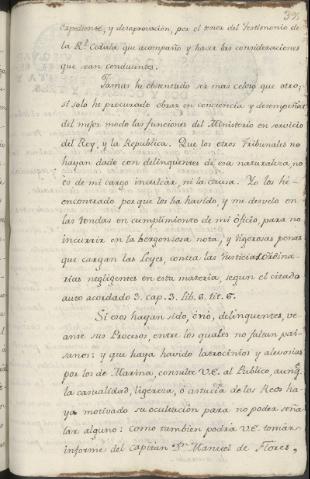 39
expediente, y desaprovación, por el tenor del Testimonio de
la Rl. Cedula que acompaño y hacer las consideraciones
que sean conducentes.
Jamas he obstentado ser mas celoso que otro,
si solo he procurado obrar en conciencia y desempeñar
del mejor modo las funciones del Ministerio en servicio
del Rey, y la Republica. Que los otros Tribunales no
hayan dado con delinquentes de esa naturaleza, no
es de mi cargo inculcar, ni la causa. Yo los he
encontrado porque los ha havido, y me desvelo en
las rondas en cumplimiento de mi oficio, para no
incurrir en la bergonsosa nota, y rigorosas penas
que cargan las Leyes, contra las Justicias Ordina-
rias negligentes en esta materia, segun el citado
auto acordado 3. cap. 3. lib. 8. tit.
Si esos hayan sido, ó nó, delinquentes, ve-
anse sus Procesos, entre los quales no faltan pai-
sanos: y que haya havido latrocinios y alevosias
por los de Marina, consulte V.E. al Publico, aunq.
la casualidad, ligereza, ó astucia de los Reos ha-
ya motivado su ocultacion para no poder seña-
lar alguno: como tambien podra V.E. tomar
informe del capitan Dn. Manuel de Flores,